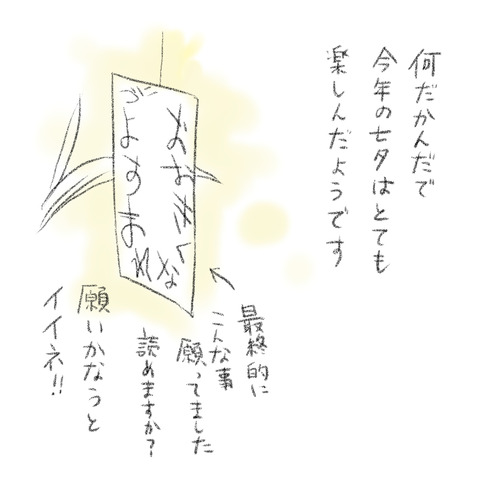 何だかんだで
今年の七夕はとても
楽しんだようです
おおきくな
れますように
最終的に
こんな事
願ってました
読めますか?
願いかなうと
イイネ!!